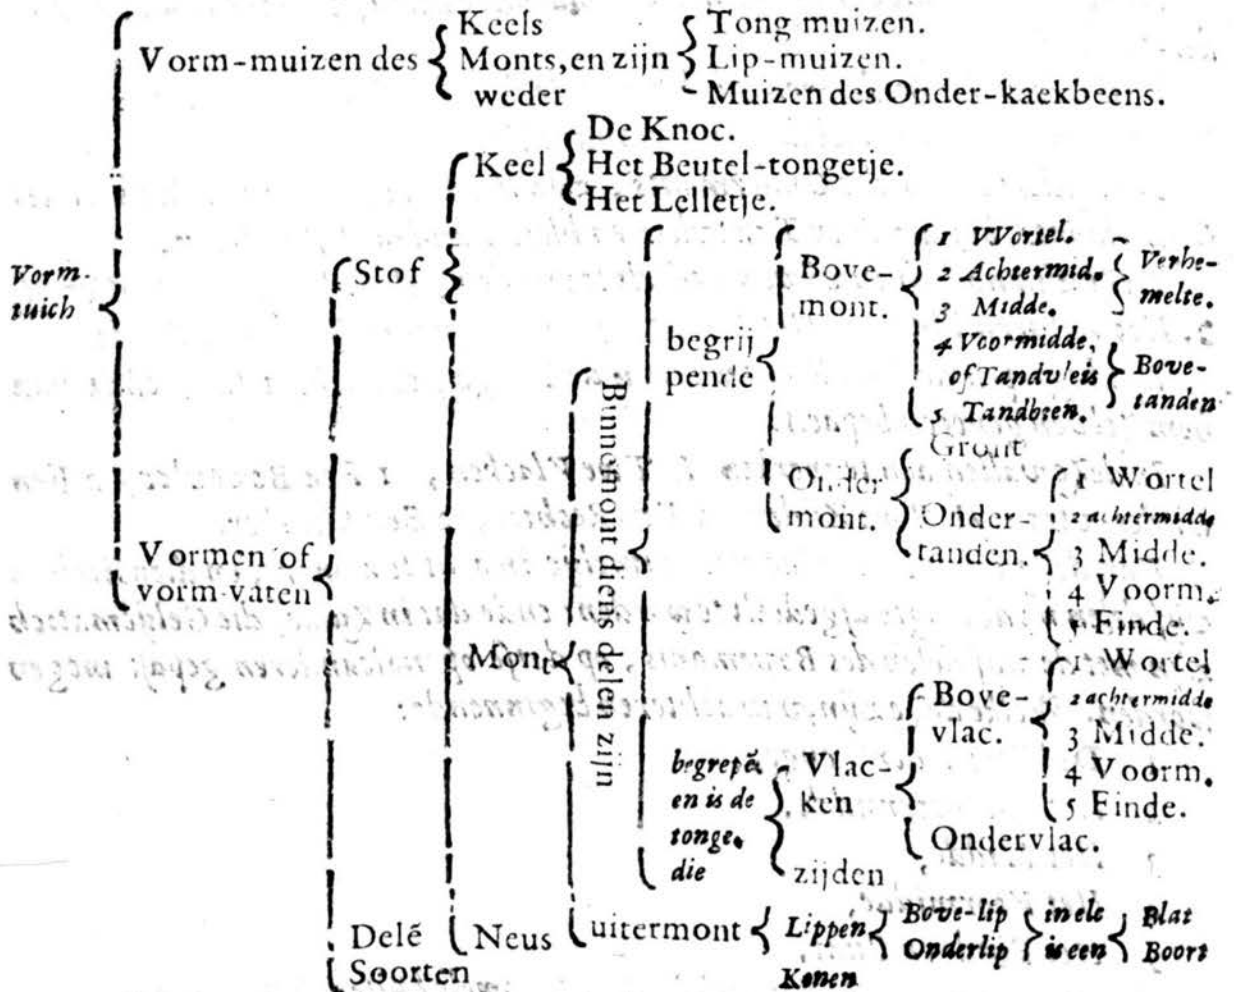 Vorm-
tuich
Vorm-muizen des
Keels
Monts, en zijn
weder
Tong muizen.
Lip-muizen.
Muizen des Onder-kaekbeens.
Vormen of
vorm-vaten
Stof
Keel
De Knoc.
Het Beutel-tongetje.
Het Lelletje.
Mont
Binnemont diens delen zijn
begrij
pende
Bove-
mont.
1 VVortel.
2 Achtermid.
3 Midde.
Verhe-
melte.
4 Voormidde,
of Tandvleis
5 Tandbeen.
Bove-
tanden
Onder
mont.
Gront
Onder-
tanden.
1 Wortel
2 achtermidde
3 Midde.
4 Voorm.
5 Einde.
begrepẽ
en is de
tonge,
die
Vlac-
ken
Bove-
vlac.
1 Wortel
2 achtermidde
3 Midde.
4 Voorm.
5 Einde.
Ondervlac.
zijden
uitermont
Lippen
Bove-lip
Onderlip
in elc
is een
Blat
Boort
Konen
Neus
Delẽ
Soorten